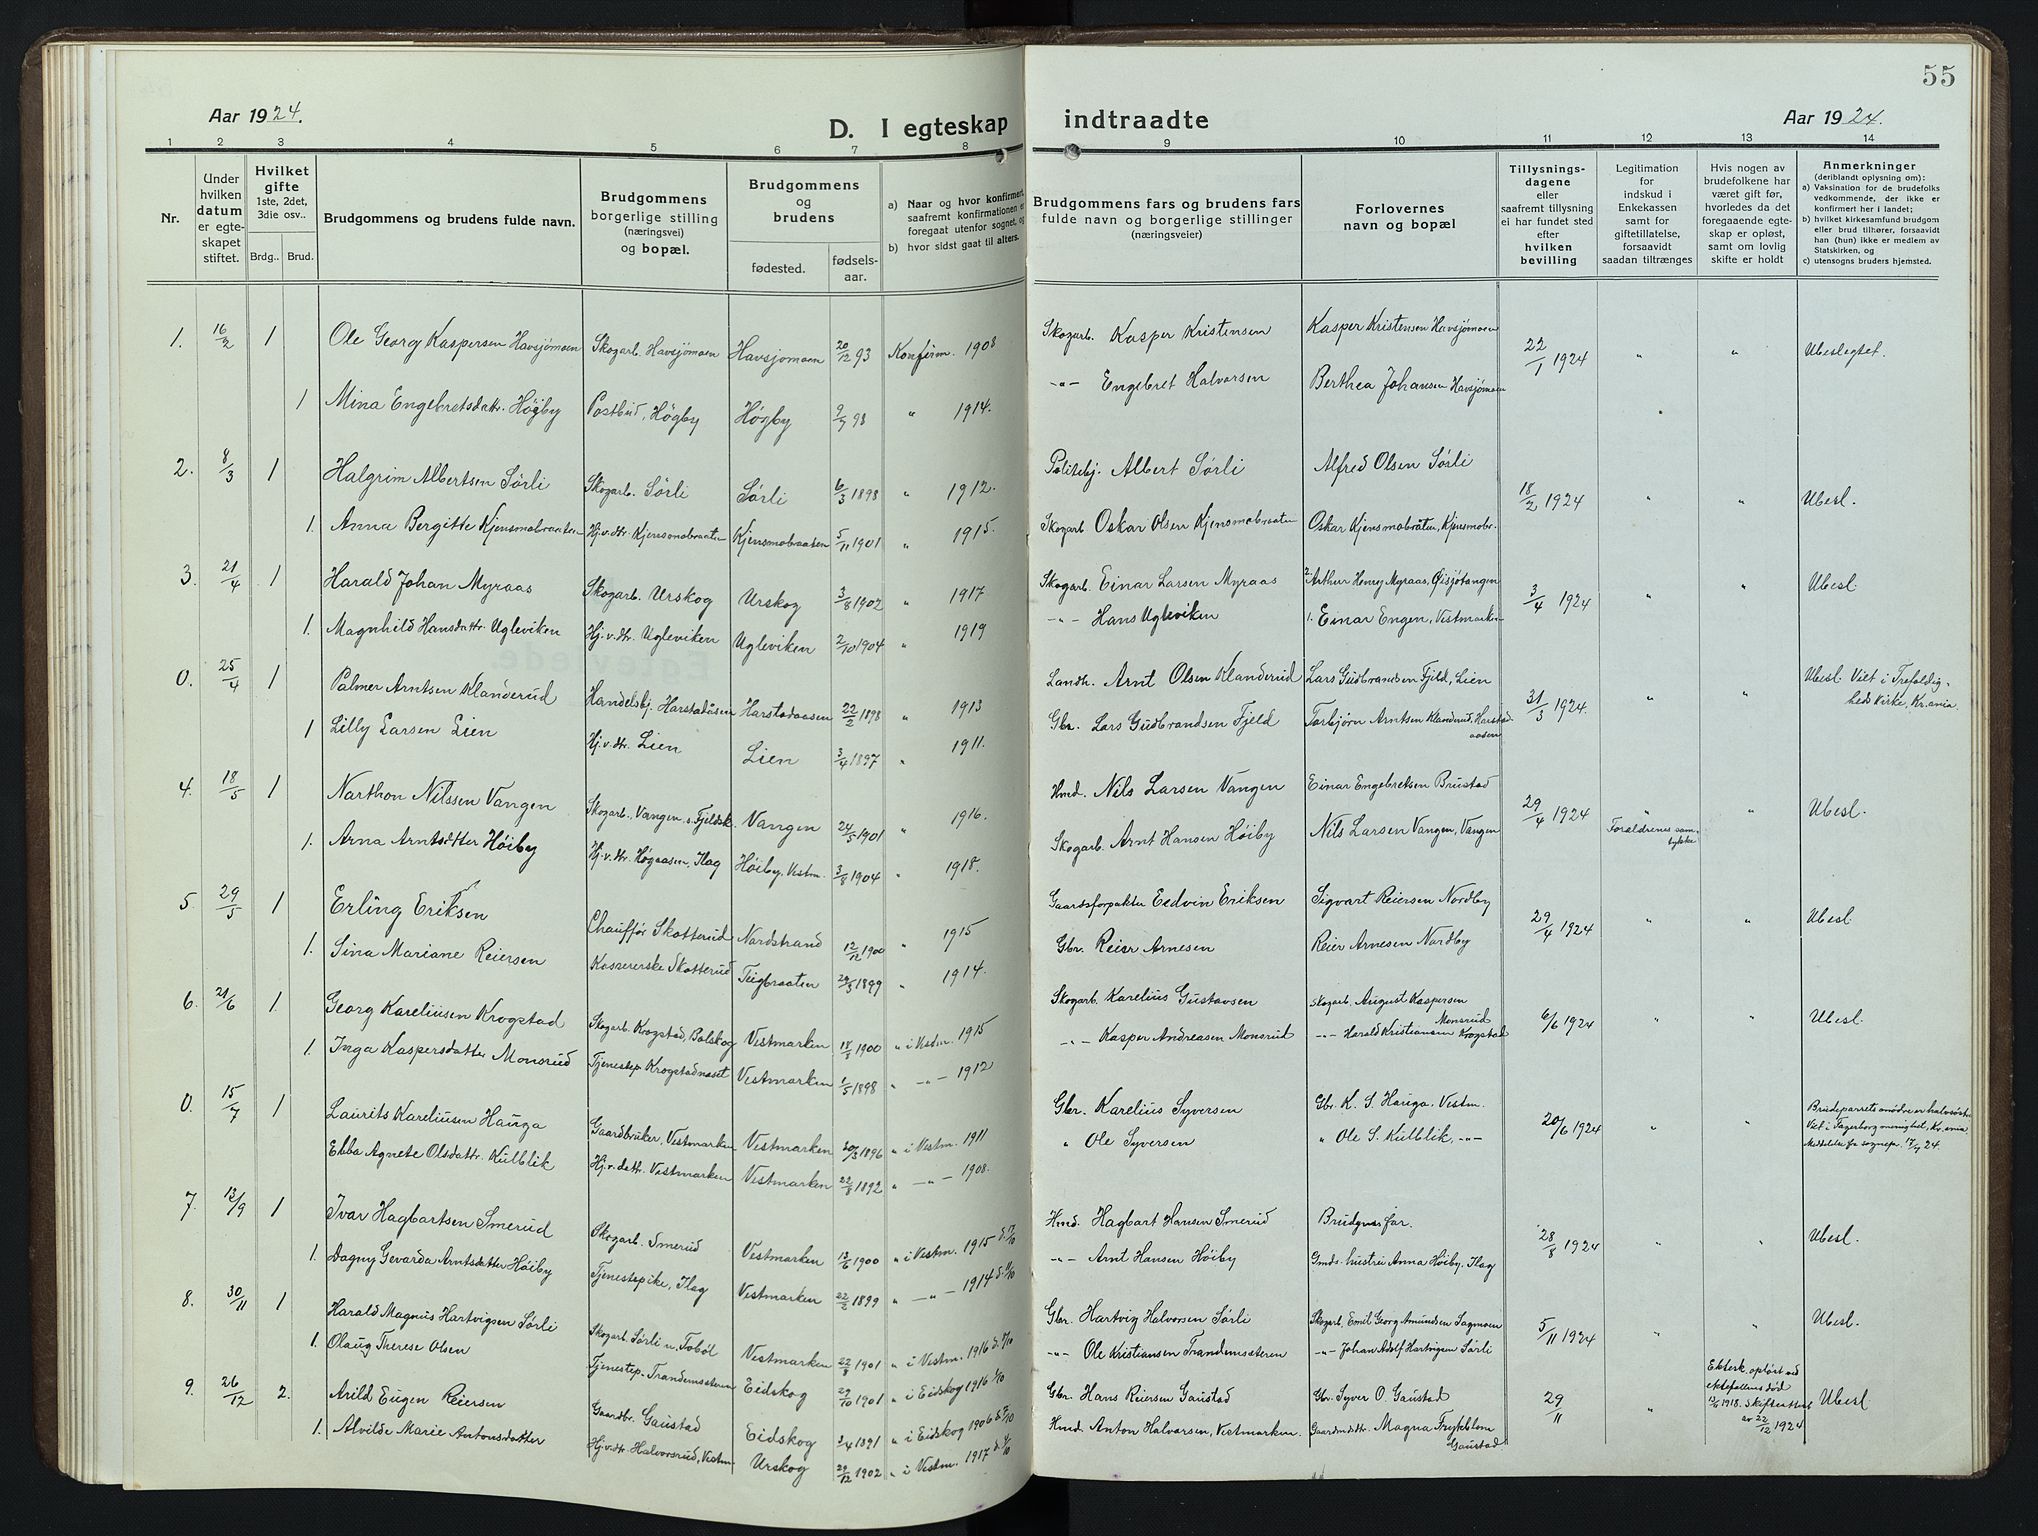 55
Aar 1924.
D. I egteskap indtraadte
Aar 1924.
1 2 3 4 5 6 7 8 9 10 11 12 13 14
Nr.
Under hvilken datum er egteskapet stiftet.
Hvilket gifte 1ste, 2det, 3die osv..
Brdg.. Brud.
Brudgommens og brudens fulde navn.
Brudgommens borgerlige stilling (næringsvei) og bopæl.
Brudgommens og brudens
fødested. fødselsaar.
a) Naar og hvor konfirmert, saafremt konfirmationen er foregaat utenfor sognet, og
b) hvor sidst gaat til alters.
Brudgommens fars og brudens fars fulde navn og borgerlige stillinger (næringsveier)
Forlovernes navn og bopæl
Tillysningsdagene eller saafremt tillysning ei har fundet sted efter hvilken bevilling
Legitimation for indskud i Enkekassen samt for giftetillatelse, forsaavidt saadan tiltrænges
Hvis nogen av brudefolkene har været gift før, hvorledes da det foregaaende egteskap er opløst, samt om lovlig skifte er holdt
Anmerkninger (deriblandt oplysning om):
a) Vaksination for de brudefolks vedkommende, der ikke er konfirmert her i landet;
b) hvilket kirkesamfund brudgom eller brud tilhører, forsaavidt han (hun) ikke er medlem av Statskirken, og
c) utensogns bruders hjemsted.
1. 16/2 1 Ole Georg Kaspersen Havsjømoen Skogarb. Havsjømoen Havsjømoen 20/12 93 Konfirm. 1908 Skogarb. Kasper Kristensen Kasper Kristensen Havsjømoen 22/1 1924 " " Ubeslegtet.
1 Mina Engebretsdattr. Høgby Postbud, Høgby Høgby 9/7 98 " 1914. -"- Engebret Halvorsen Berthea Johansen Havsjømoen
2. 8/3 1 Halgrim Albertsen Sørli Skogarb. Sørli Sørli 6/3 1898 " 1912. Politibj. Albert Sørli Alfred Olsen Sørli 18/2 1924 " " Ubesl.
1. Anna Bergitte Kjensmobraaten Hj.v.dtr. Kjensmobraaten Kjensmobraaten 5/11 1901 " 1915. Skogarb Oskar Olsen Kjensmobraaten Oskar Kjensmobråten, Kjensmobr.
3. 21/4 1 Harald Johan Myraas Skogarb. Urskog Urskog 3/8 1902 " 1917 Skogarb. Einar Larsen Myraas 2. Arthur Henry Myraas, Øisjøtangen 3/4 1924 " " Ubesl.
1. Magnhild Hansdattr. Ugleviken Hj.v.dtr. Ugleviken Ugleviken 2/10 1904 " 1919 -"- Hans Ugleviken 1. Einar Engen, Vestmarken
0. 25/4 1 Palmer Arntsen Klanderud Handelsbj. Harstadåsen Harstadaasen 22/2 1898 " 1913 Landh. Arnt Olsen Klanderud Lars Gudbrandsen Fjeld, Lien 31/3 1924. " " Ubesl. Viet i Trefoldighedskirke, Kr.ania.
1 Lilly Larsen Lien Hj.v.dtr. Lien Lien 3/4 1897 " 1911. Gbr. Lars Gudbrandsen Fjeld Torbjørn Arntsen Klanderud, Harstadaasen
4. 18/5 1 Narthon Nilssen Vangen Skogarb., Vangen s. Fjeldsk. Vangen 24/5 1901 " 1916. Hmd. Nils Larsen Vangen Einar Engebretsen Brustad 29/4 1924 " Foraldrenes samtykke " Ubesl.
1. Arna Arntsdatter Høiby Hj.v.dtr. Høgaasen, Ilag Høiby, Vestm. 3/8 1904 " 1918. Skogarb. Arnt Hansen Høiby Nils Larsen Vangen, Vangen
5. 29/5 1 Erling Eriksen Chauffør Skotterud Nordstrand 12/12 1900 " 1915 Gaardsforpakter Eedvin Eriksen Sigvart Reiersen Nordby 29/4 1924 " " Ubesl.
1. Sina Mariane Reiersen Kassererske Skotterud Teigbraaten 24/3 1899 " 1914. Gbr. Reier Arnesen Reier Arnesen Nordby
6. 21/6 1 Georg Kareliusen Krogstad Skogarb. Krogstad, Bolskog Vestmarken 18/8 1900 " i Vestm. 1915 Skogarb. Karelius Gustavsen Skogarb. August Kaspersen Monsrud 6/6 1924 " " Ubesl.
1. Inga Kaspersdatter Monsrud Tjenestep. Krogstadneset Vestmarken 1/5 1898 " -"- 1912 -"- Kasper Andreasen Monsrud -"- Harald Kristiansen Krogstad
0. 15/7 1 Laurits Kareliusen Hauga Gaardbruker, Vestmarken Vestmarken 20/3 1896 " i Vestm. 1911 Gbr. Karelius Syversen Gbr. K. S. Hauga. Vestm. 20/6 1924 " " Brudeparrets mødre er halvsøstre. Viet i Fagerborg menighet, Kr.ania. Meddelse fra sognepr. 17/7 24.
Ebba Agnete Olsdattr. Kulblik Hj.v.dattr. Vestmarken Vestmarken 22/8 1892 " -"- 1908. " Ole Syversen " Ole S. Kulblik, -"-
7. 13/9 1 Ivar Hagbartsen Smerud Skogarb. Smerud Vestmarken 13/6 1900 " i Vestm. 1915 Hmd. Hagbart Hansen Smerud Brudgms far. 28/8 1924 " " Ubesl.
1. Dagny Gevarda Arntsdatter Høiby Tjenestepike, Ilag Vestmarken 22/2 1899 " -"- 1914 -"- Arnt Hansen Høiby Gmds. hustru Anna Høiby. Ilag
8. 30/11 1 Harald Magnus Hartvigsen Sørli Skogarb. Sørli u. Tobøl Vestmarken 22/8 1901 " i Vestm. 1916 Gbr. Hartvig Halvorsen Sørli Skogarb. Emil Georg Amundsen Sagmoen 5/11 1924 " " Ubesl.
1. Olaug Therese Olsen Tjenestep. Trandemsæteren Eidskog 27/10 1901 " i Eidskog 1916 -"- Ole Kristiansen Trandemsæteren -"- Johan Adolf Hartvigsen Sørli
9. 26/12 2. Arild Eugen Reiersen Gaardbr. Gaustad Eidskog 3/4 1891 " i Eidskog 1906 Gbr. Hans Reiersen Gaustad Gbr. Syver O. Gaustad 29/11 " Ektesk. opløst ved ektefellens død 1918. Skifteattest av 22/12 1924 Ubesl
1. Alvilde Marie Antonsdatter Hj.v.dtr. Halvorsrud, Vestm. Urskog 29/12 1902 " i Vestm. 1917 Hmd. Anton Halvorsen, Vestmarken. Magna Frykblom Gaustad